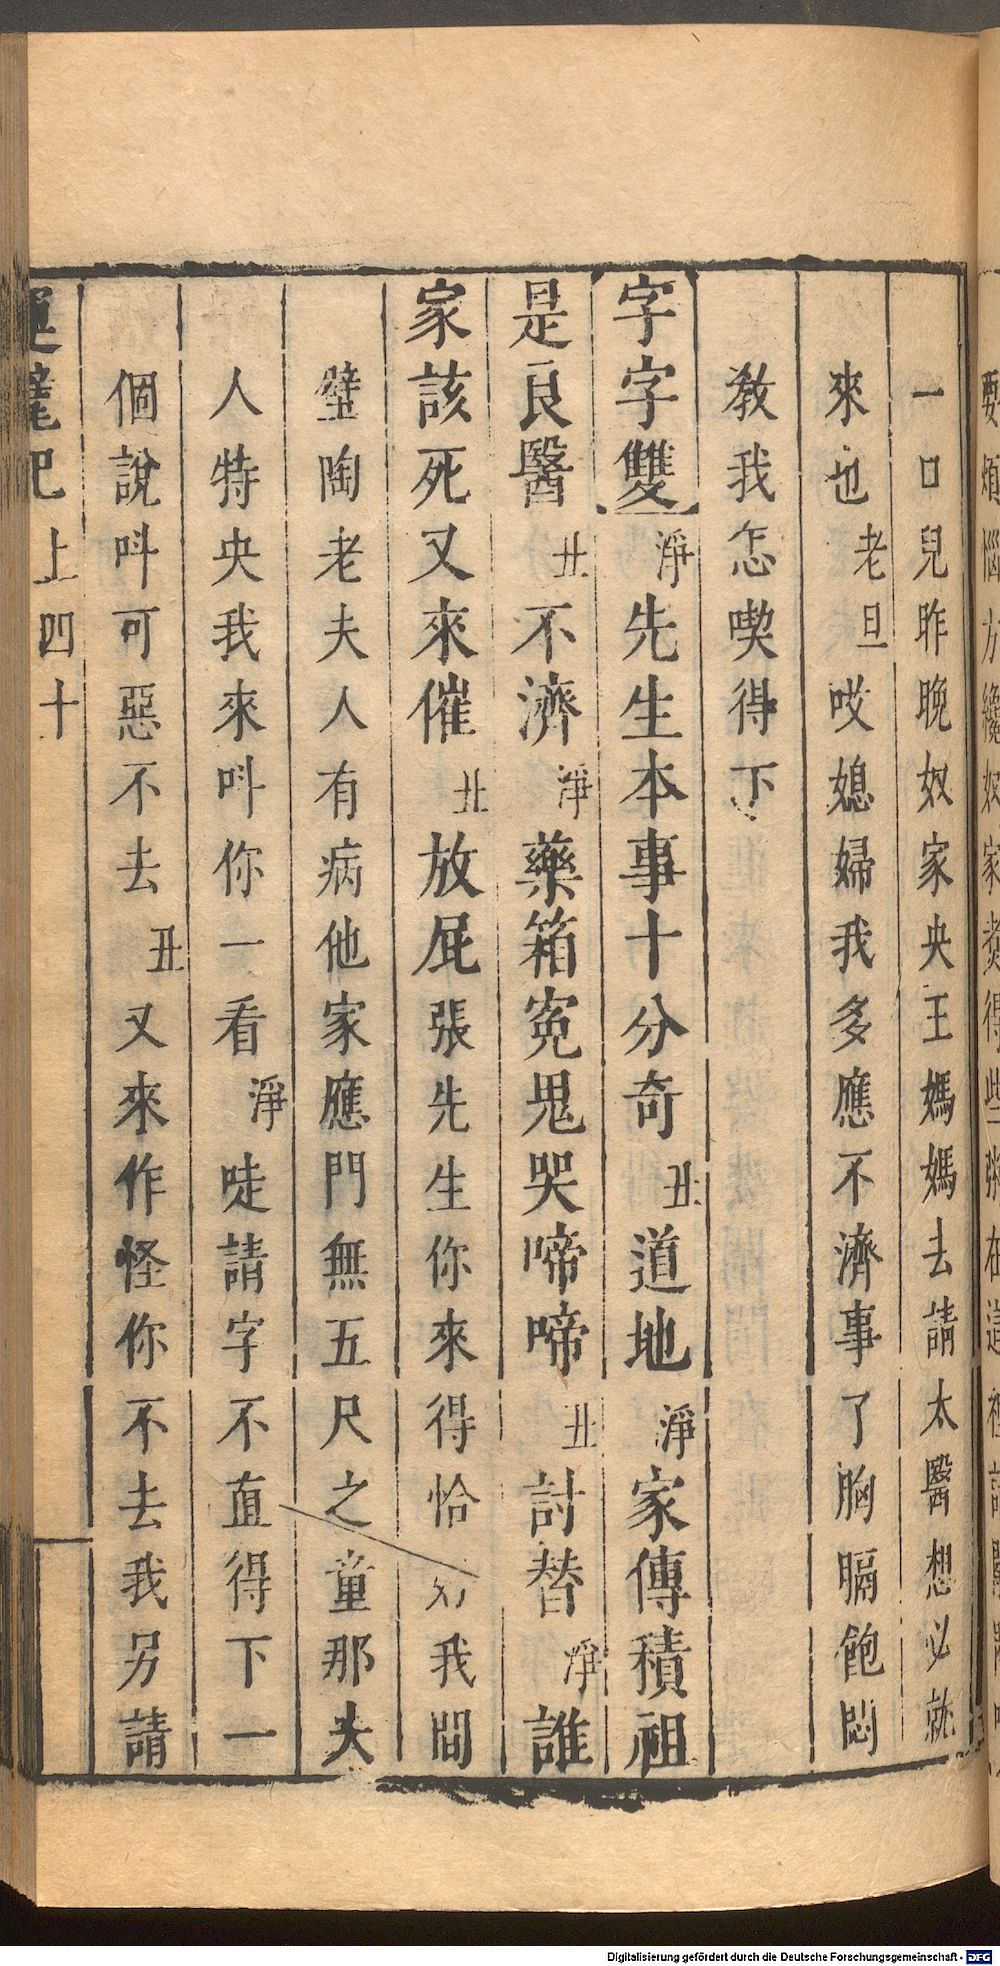 一口兒昨晚奴家央王媽媽去請太醫想必就
來也老旦哎媳婦我多應不濟事了胸膈飽悶
教我怎喫得下
字字雙淨先生本事十分奇丑道地淨家傳積祖
是良醫丑不濟淨藥箱寃鬼哭啼啼丑討替淨誰
家該死又來催丑放屁張先生你來得恰好我間
壁陶老夫人有病他家應門無五尺之童那大
人特央我來呌你一看淨唗請字不直得下一
個說呌可惡不去丑又來作怪你不去我另請
運甓記
上四十
Digitalisierung gefördert durch die Deutsche Forschungsgemeinschaft - DFG